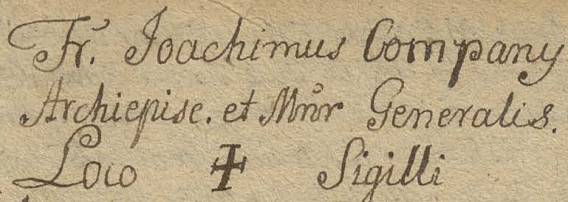 Fr. Joachimus Company
Archiepisc. et Mnr̃ Generalis.
Loco ✠ Sigilli